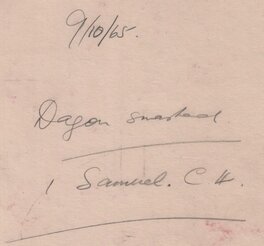 9/10/65.
Dagon smashed.
1 Samuel. C 4.